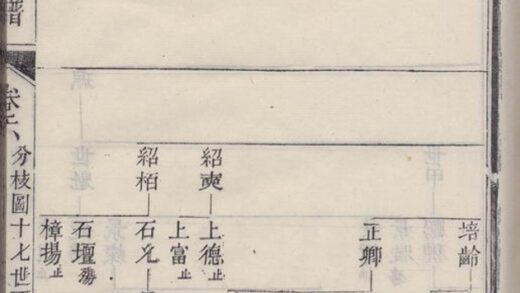 培齡
正卿止
紹
上德止
上富止
紹柏
石
石壇殤
樟揚止
譜
卷六
分枝圖十七世